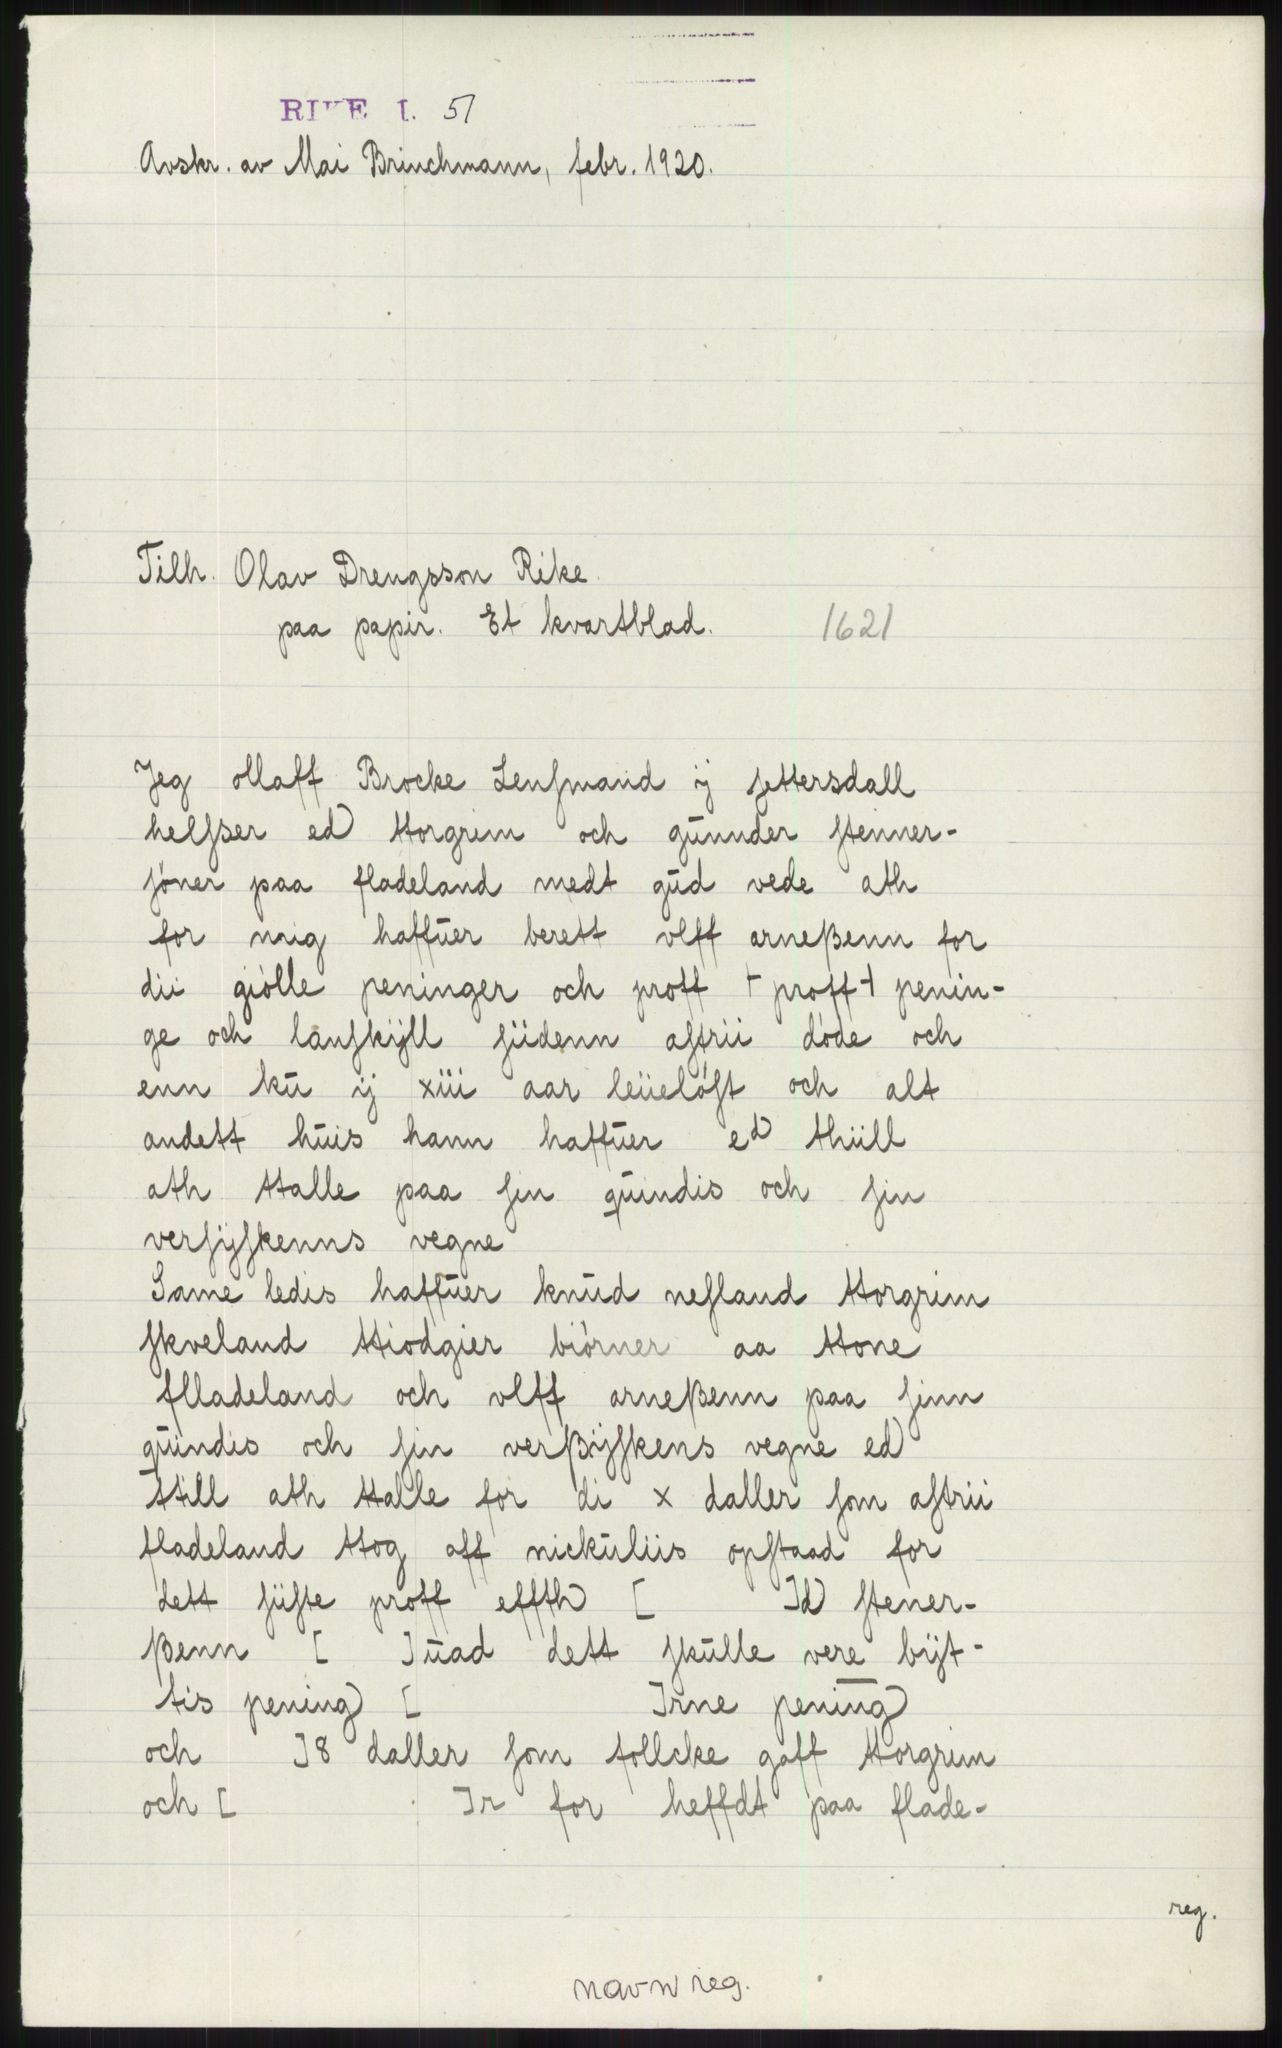 RIKE I. 51
Avskr. av Mai Brinchmann, febr. 1920.
Tilh. Olav Drengsson Rike.
paa papir. Et kvartblad. 1621
Jeg ollaff Brocke Lenſmand ij ſettersdall
helſser ed ttorgrim och gunnder ſtenner-
ſöner paa fladeland medt gud vede ath
for mig haffuer berett vlff arneßenn for
dii giölle peninger och proff ⊢ proff ⊣ penin-
ge och lanſkÿll ſiidenn aſtrii döde och
enn ku ij xiii aar leüelöſt och alt
andett huis hann haffuer ed thiill
ath ttalle paa ſin quindis och ſin
verſÿſkenns vegne
Same ledis haffuer knud neſland ttorgrim
ſkveland ttiodgier biörner aa ttone
flladeland och vlff arneßenn paa ſinn
quindis och ſin verßÿſkens vegne ed
ttill ath ttalle for di x daller ſom aſtrii
fladeland ttog aff nickuliis opſtaad for
dett ſiiſte proff effth [ ]d ſtener-
ßenn [ ]uad dett ſkulle vere bÿt-
tis pening [ ]rne pening
och ]8 daller ſom follcke gaff ttorgrim
och [ ]r for heffdt paa flade-
reg.
navn reg.